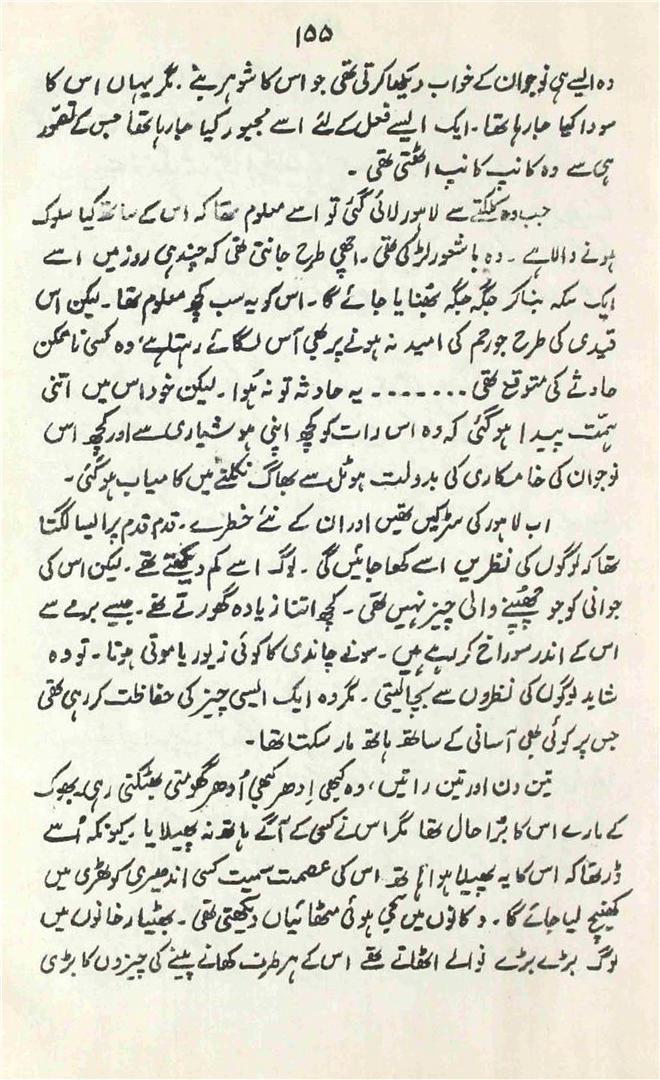 ۱۵۵
وہ ایسے ہی نوجوان کے خواب دیکھا کرتی تھی جو اس کا شوہر بنے ۔ مگر یہاں اس کا
سودا کیا جا رہا تھا ۔ ایک ایسے فعل کے لئے اسے مجبور کیا جا رہا تھا جس کے تصور
ہی سے وہ کانپ کانپ اٹھتی تھی ۔
جب وہ کلکتے سے لاہور لائی گئی تو اسے معلوم تھا کہ اس کے ساتھ کیا سلوک
ہونے والا ہے ۔ وہ باشعور لڑکی تھی ۔ اچھی طرح جانتی تھی کہ چند ہی روز میں اسے
ایک سکہ بنا کر جگہ جگہ بھنایا جائے گا ۔ اس کو یہ سب کچھ معلوم تھا ۔ لیکن اس
قیدی کی طرح جو رحم کی امید نہ ہونے پر بھی آس لگائے رہتا ہے، وہ کسی ناممکن
حادثے کی متوقع تھی ۔۔۔۔۔۔۔ یہ حادثہ تو نہ ہوا ۔ لیکن خود اس میں اتنی
ہمّت پیدا ہو گئی کہ وہ اس رات کو کچھ اپنی ہوشیاری سے اور کچھ اس
نوجوان کی خامکاری کی بدولت ہوٹل سے بھاگ نکلنے میں کامیاب ہو گئی ۔
اب لاہور کی سڑکیں تھیں اور ان کے نئے خطرے ۔ قدم قدم پر ایسا لگتا
تھا کہ لوگوں کی نظریں اسے کھا جائیں گی ۔ لوگ اسے کم دیکھتے تھے ۔ لیکن اس کی
جوانی کو جو چھپنے والی چیز نہیں تھی ۔ کچھ اتنا زیادہ گھورتے تھے ۔ جیسے برمے سے
اس کے اندر سوراخ کر رہے ہیں ۔ سونے چاندی کا کوئی زیور یا موتی ہوتا ۔ تو وہ
شاید لوگوں کی نظروں سے بچا لیتی ۔ مگر وہ ایک ایسی چیز کی حفاظت کر رہی تھی
جس پر کوئی بھی آسانی کے ساتھ ہاتھ مار سکتا تھا ۔
تین دن اور تین راتیں، وہ کبھی اِدھر کبھی اُدھر گھومتی بھٹکتی رہی ۔ بھوک
کے مارے اس کا بُرا حال تھا مگر اس نے کسی کے آگے ہاتھ نہ پھیلایا ۔ کیونکہ اُسے
ڈر تھا کہ اس کا یہ پھیلا ہوا ہاتھ اس کی عصمت سمیت کسی اندھیری کوٹھڑی میں
کھینچ لیا جائے گا ۔ دکانوں میں سجی ہوئی مٹھائیاں دیکھتی تھی ۔ بھٹیار خانوں میں
لوگ بڑے بڑے نوالے اٹھاتے تھے اس کے ہر طرف کھانے پینے کی چیزوں کا بڑی